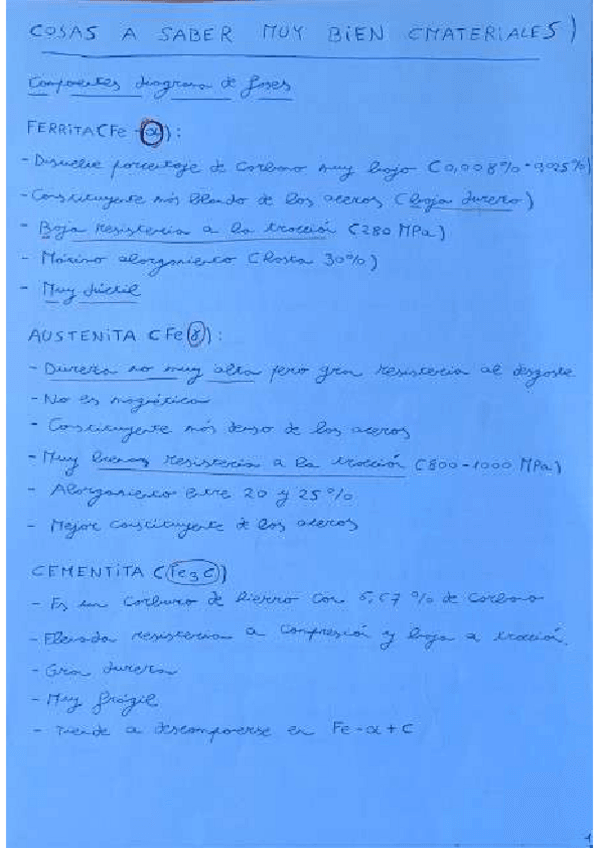 COSAS A SABER MUY BIEN (MATERIALES)
Componentes diagrama de fases
FERRITA (Fe-α):
- Disuelve porcentaje de carbono muy bajo (0,008% - 0,025%)
- Constituyente más blando de los aceros (baja dureza)
- Baja resistencia a la tracción (280 MPa)
- Máximo alargamiento (hasta 30%)
- Muy dúctil
AUSTENITA (Fe γ):
- Dureza no muy alta pero gran resistencia al desgaste
- No es magnética
- Constituyente más denso de los aceros
- Muy buena resistencia a la tracción (800-1000 MPa)
- Alargamiento entre 20 y 25%
- Mejor constituyente de los aceros
CEMENTITA (Fe3C)
- Es un carburo de hierro con 6,67 % de carbono
- Elevada resistencia a compresión y baja a tracción.
- Gran dureza
- Muy frágil
- Tiende a descomponerse en Fe-α + C
1